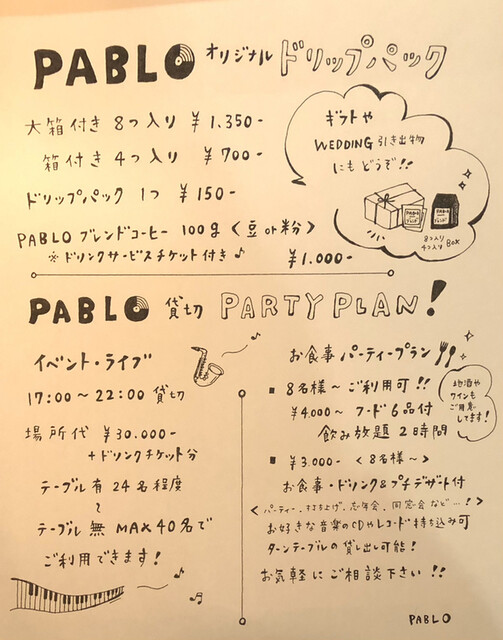 PABLO オリジナル ドリップパック
大箱付き 8つ入り ¥1.350-
箱付き 4つ入り ¥700-
ドリップパック 1つ ¥150-
PABLO ブレンドコーヒー 100g 〈豆or粉〉
※ドリンクサービスチケット付き♪
¥1.000-
ギフトや
WEDDING 引き出物
にもどうぞ!!
8つ入り
4つ入り BOX
PABLO 貸切 PARTY PLAN!
イベント・ライブ
17:00〜22:00 貸切
場所代 ¥30.000-
+ドリンクチケット分
テーブル有 24名程度
〜
テーブル無 MAX40名で
ご利用できます!
お食事パーティープラン
■ 8名様〜 ご利用可!!
¥4,000〜 フード6品付
飲み放題 2時間
■ ¥3.000- 〈8名様〜〉
お食事・ドリンク&プチデザート付
〈パーティー、打ち上げ、忘年会、同窓会など…!〉
お好きな音楽のCDやレコード持ち込み可
ターンテーブルの貸し出し可能!
お気軽にご相談下さい!!
地酒や
ワインも
ご用意
してます!
PABLO